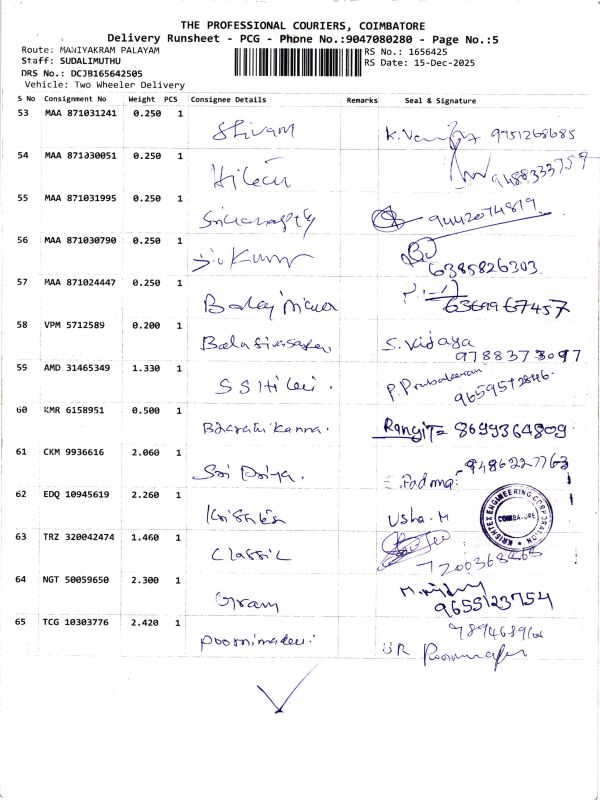 THE PROFESSIONAL COURIERS, COIMBATORE
Delivery Runsheet - PCG - Phone No.:9047080280 - Page No.:5
Route: MANIYAKRAM PALAYAM
RS No.: 1656425
Staff: SUDALIMUTHU
RS Date: 15-Dec-2025
DRS No.: DCJB165642505
Vehicle: Two Wheeler Delivery
S No Consignment No Weight PCS Consignee Details Remarks Seal & Signature
53 MAA 871031241 0.250 1 Shivam 9751268685
54 MAA 871030051 0.250 1 9488333759
55 MAA 871031995 0.250 1 9442074819
56 MAA 871030790 0.250 1 6385826303
57 MAA 871024447 0.250 1
58 VPM 5712589 0.200 1 S. Vidaya
9788373097
59 AMD 31465349 1.330 1 P. Prabakaran
60 KMR 6158951 0.500 1 Bharath Kanna. 8699364809
61 CKM 9936616 2.060 1 Sri Priya. Padma 9486227763
62 EDQ 10945619 2.260 1 Usha. M
KRISHTEX ENGINEERING CORPORATION
COIMBATORE
63 TRZ 320042474 1.460 1 Classic
64 NGT 50059650 2.300 1
9655123754
65 TCG 10303776 2.420 1 Poornimadevi.